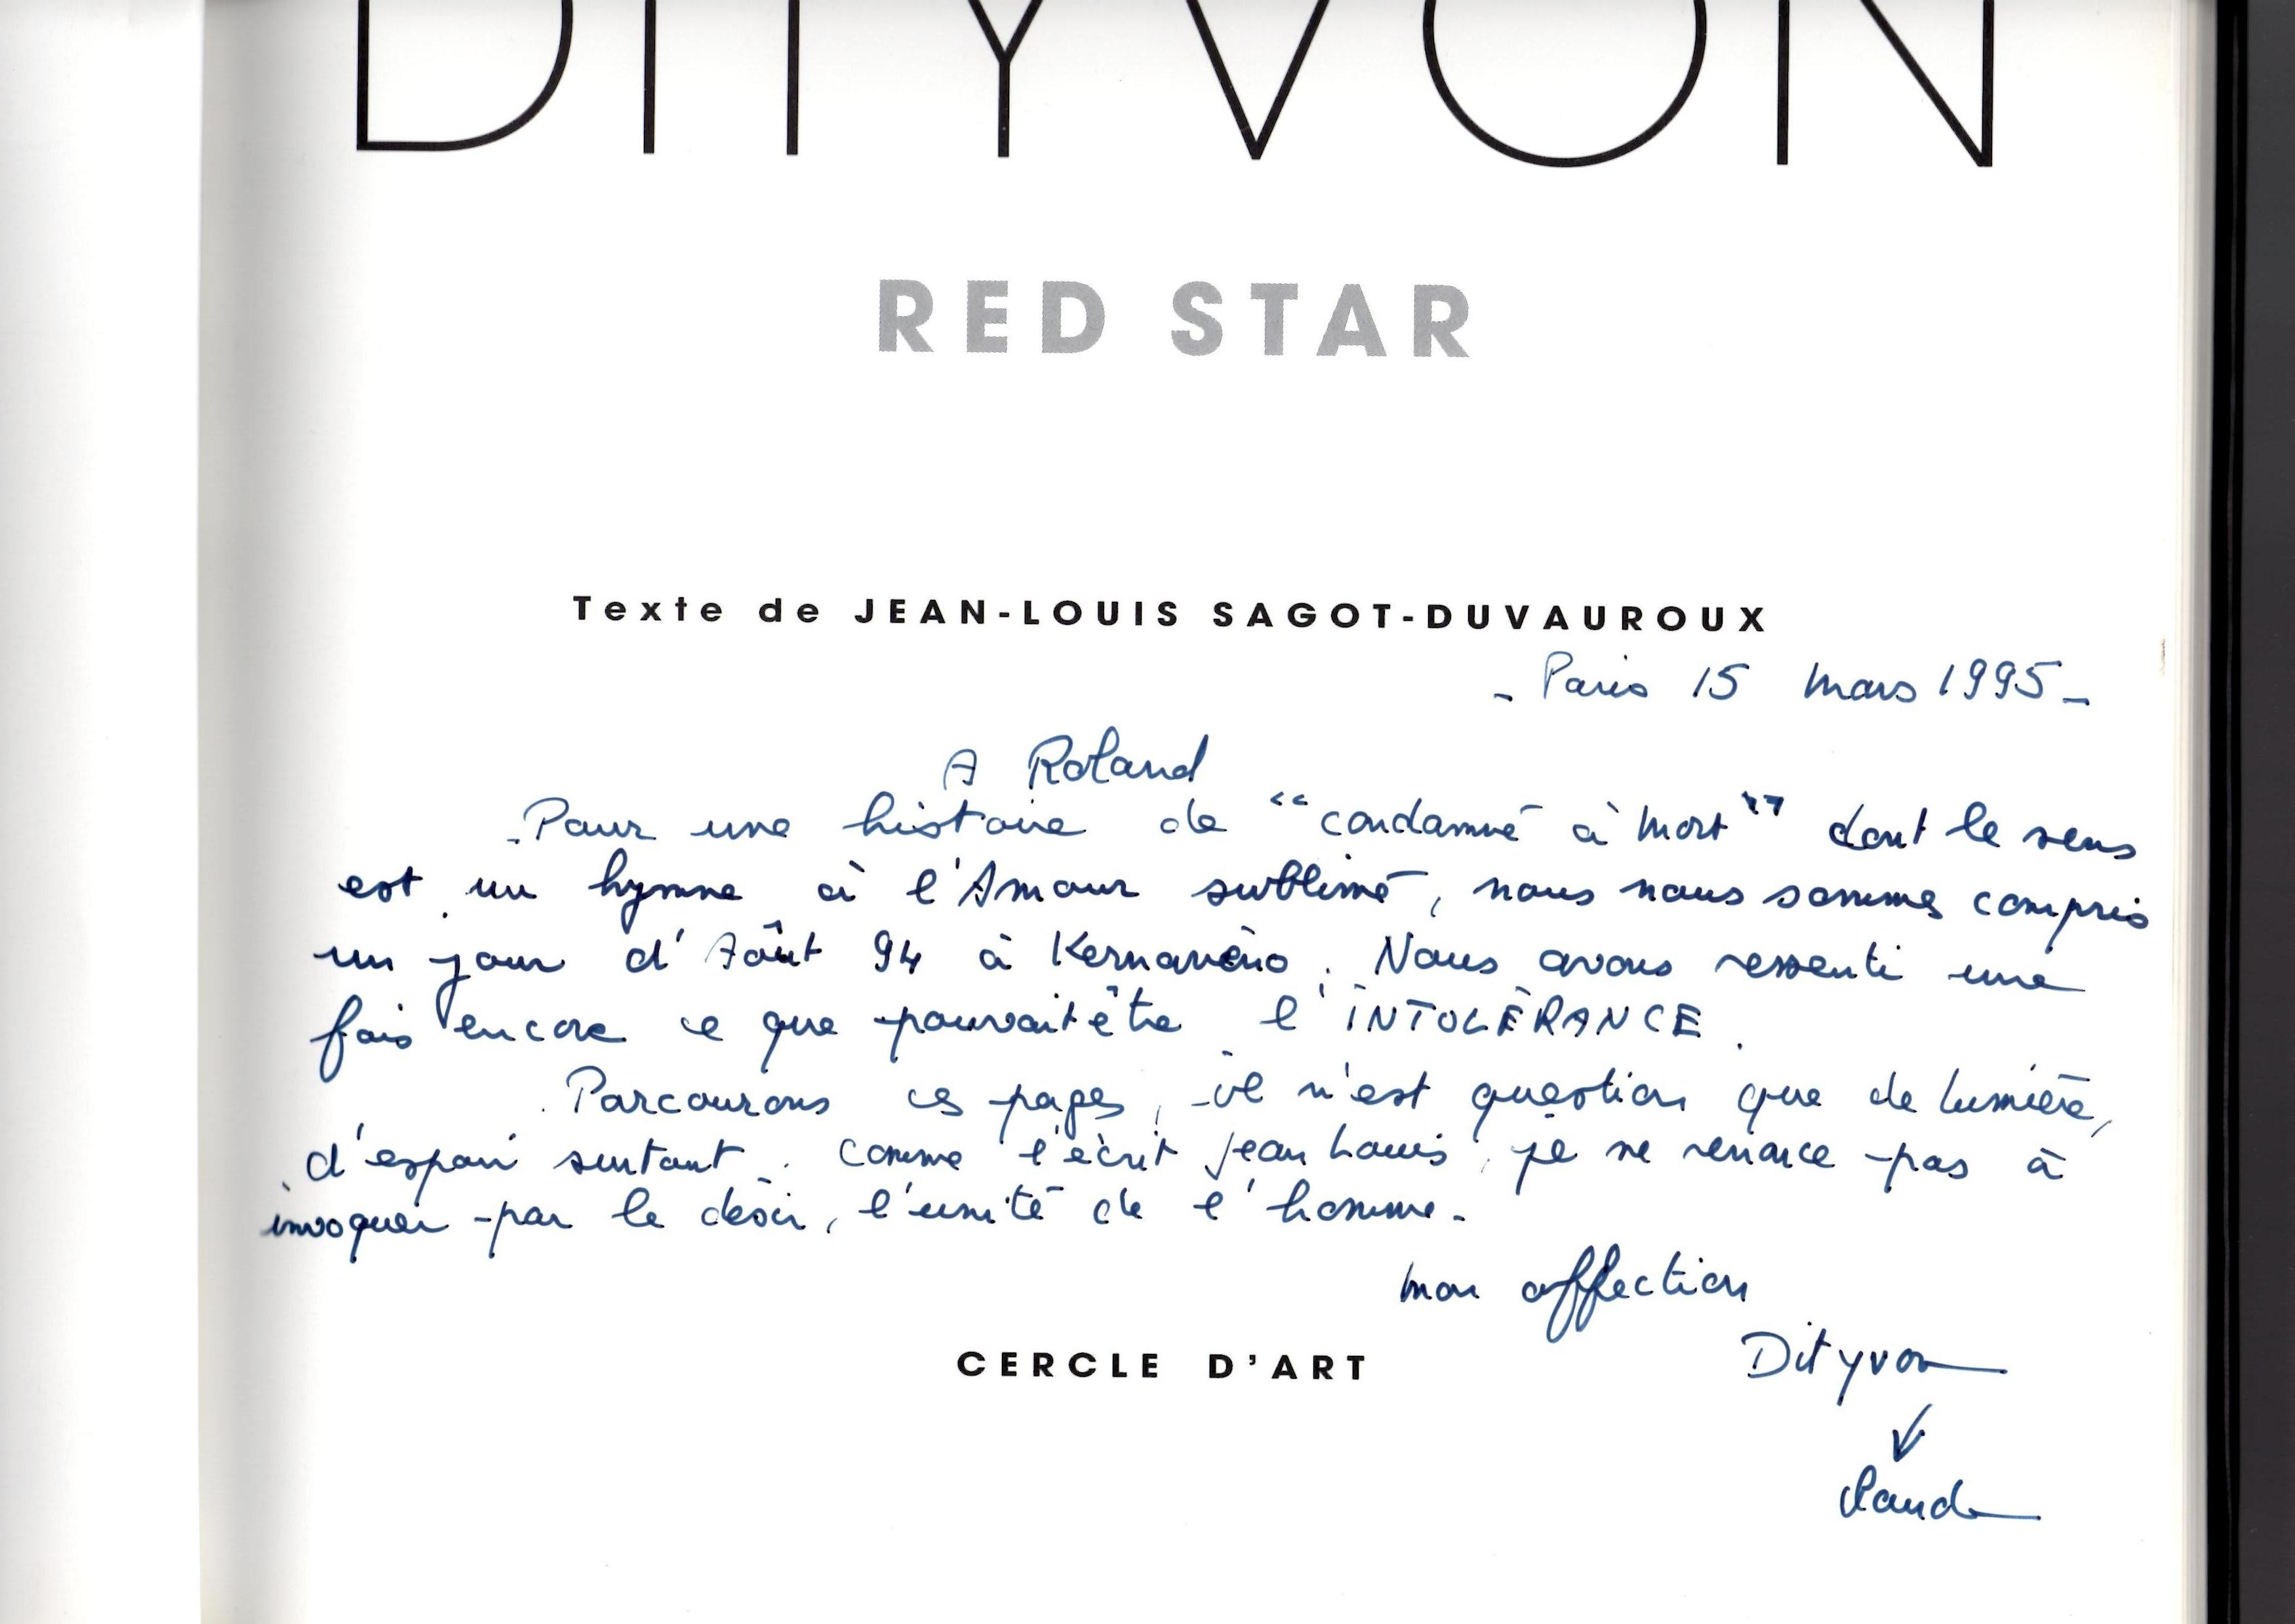 DITYVON
RED STAR
Texte de JEAN-LOUIS SAGOT-DUVAUROUX
- Paris 15 mars 1995 -
A Roland
- Pour une histoire de "condamné à mort" dont le sens
est un hymne à l'Amour sublimé, nous nous sommes compris
un jour d'Août 94 à Kernavéno. Nous avons ressenti une
fois encore ce que pouvait être l'INTOLÉRANCE.
Parcourons ces pages, il n'est question que de lumière,
d'espoir surtout. Comme l'écrit Jean Louis, je ne renonce pas à
invoquer par le désir, l'unité de l'homme.
mon affection
CERCLE D'ART
Dityvon
Claude